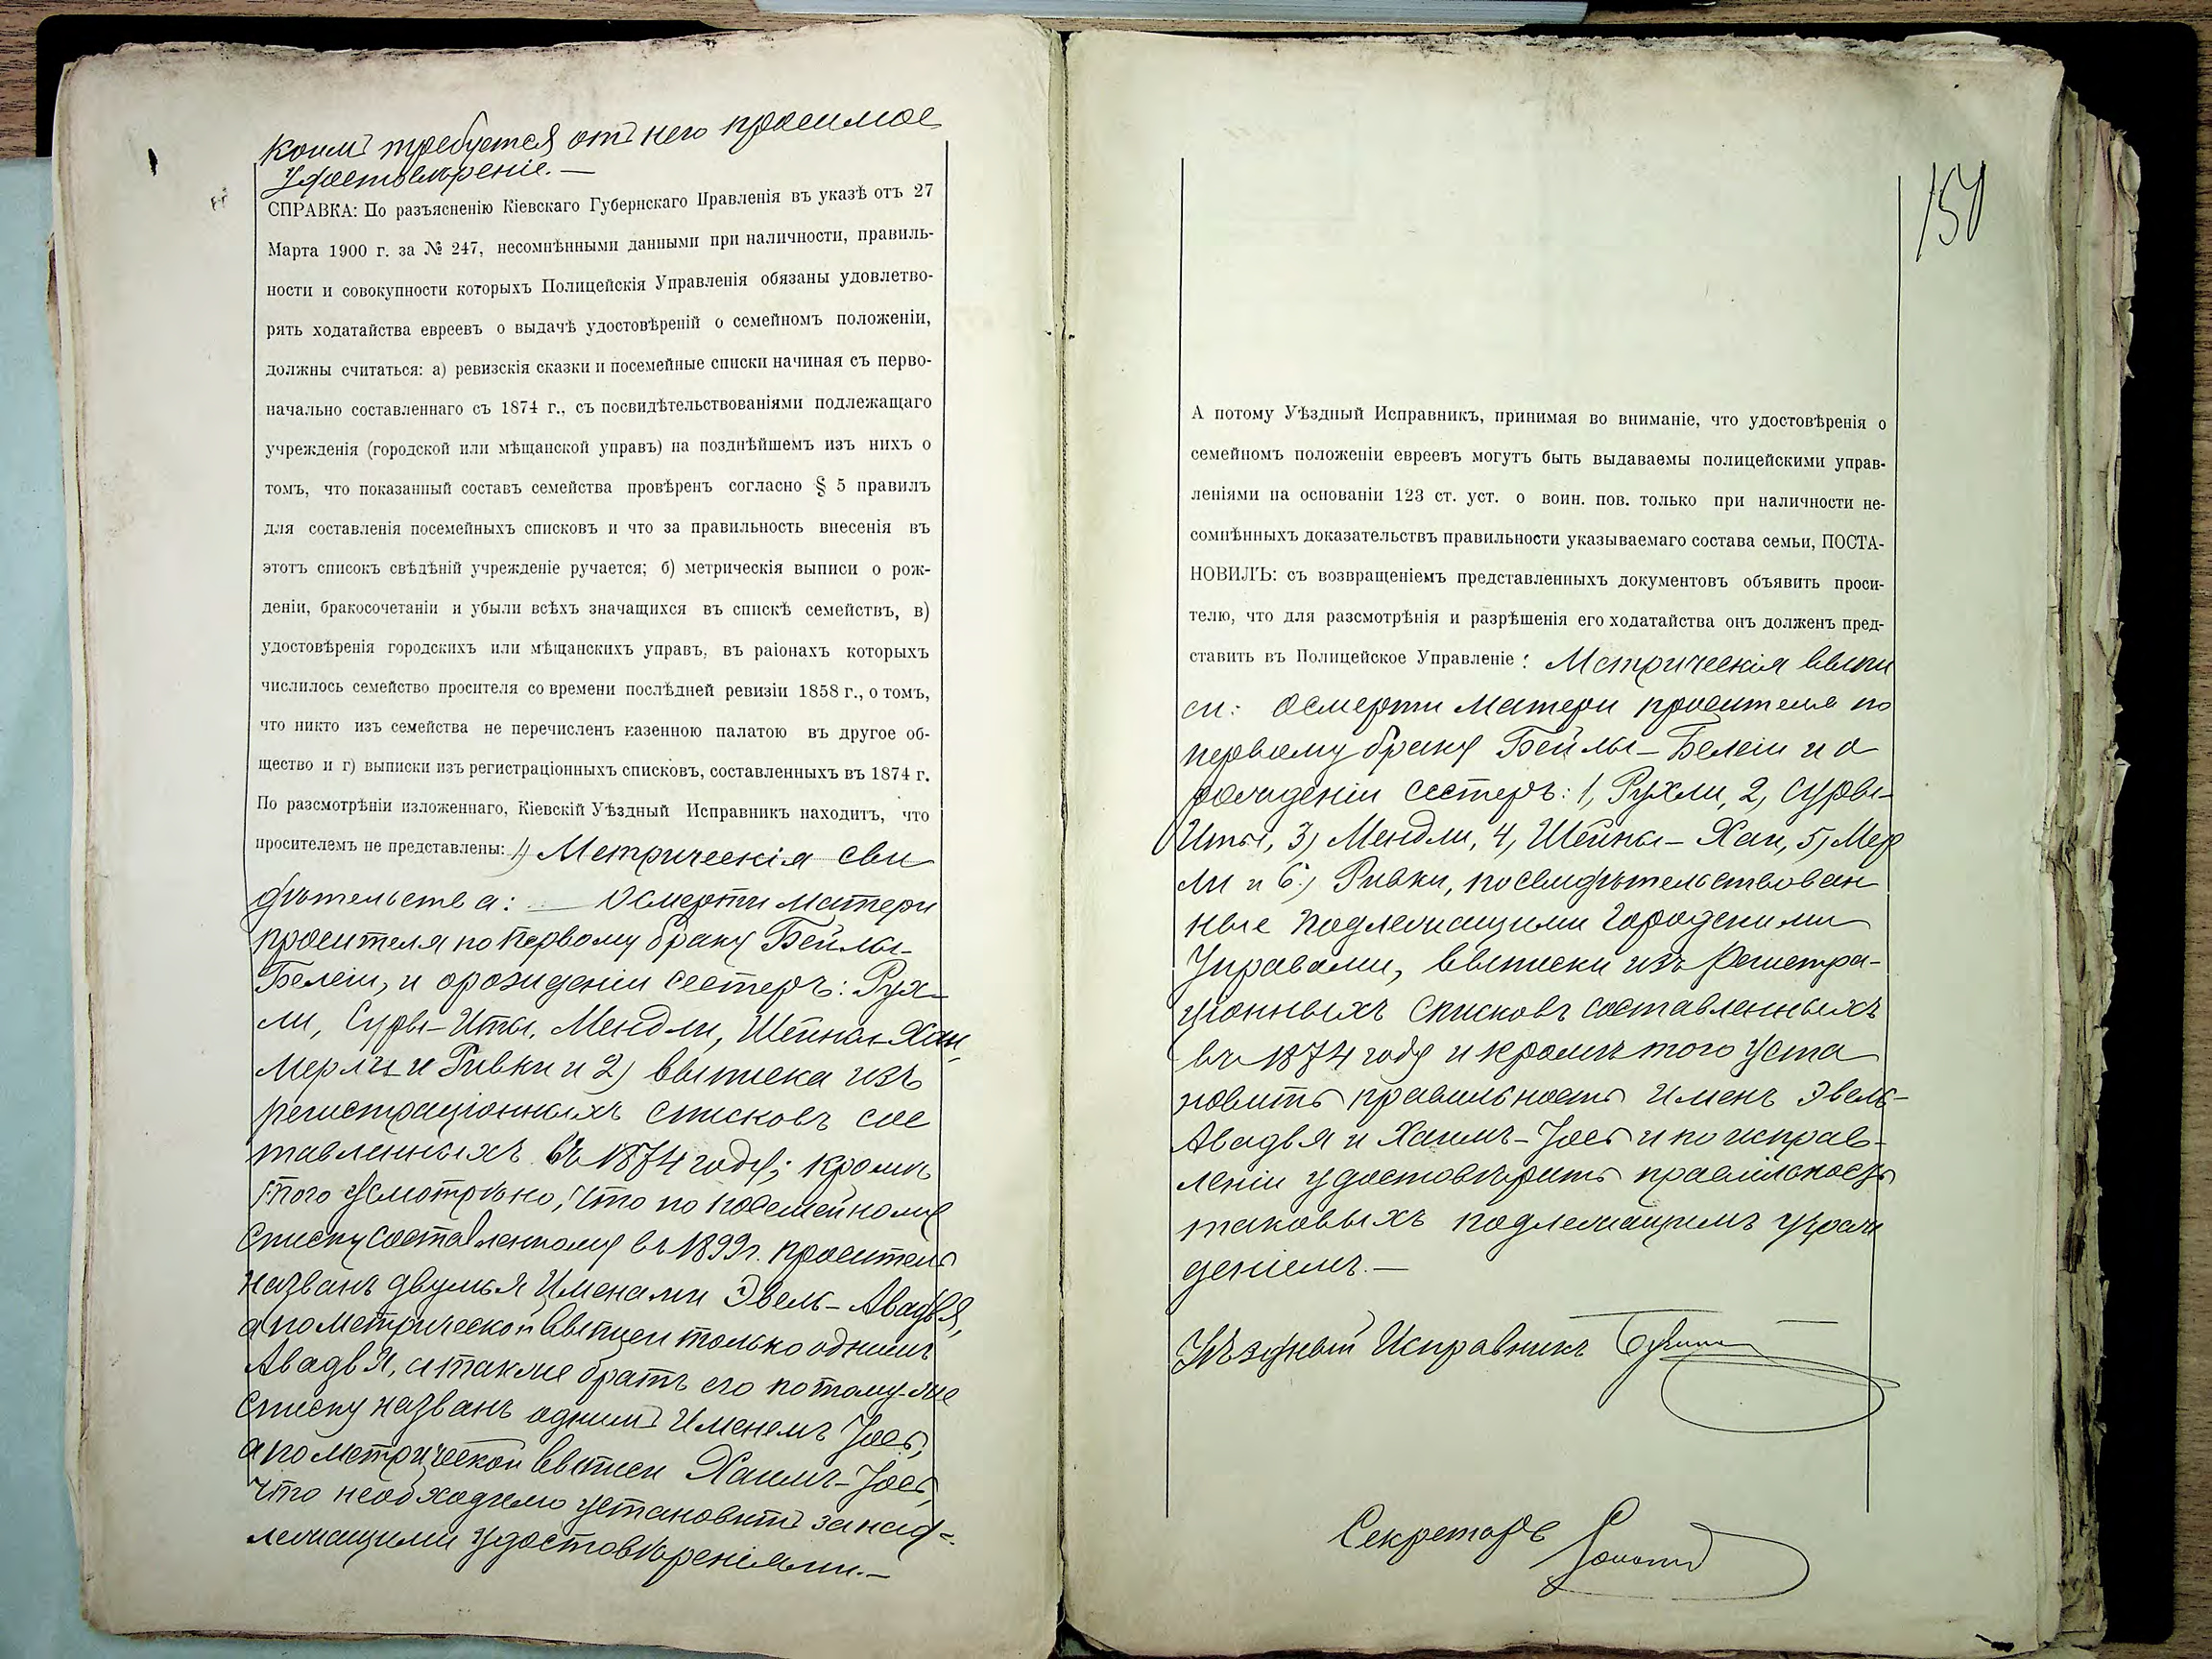 коимъ требуется отъ него просимое
удостовѣреніе. —
СПРАВКА: По разъясненію Кіевскаго Губернскаго Правленія въ указѣ отъ 27
Марта 1900 г. за № 247, несомнѣнными данными при наличности, правиль-
ности и совокупности которыхъ Полицейскія Управленія обязаны удовлетво-
рять ходатайства евреевъ о выдачѣ удостовѣреній о семейномъ положеніи,
должны считаться: а) ревизскія сказки и посемейные списки начиная съ перво-
начально составленнаго съ 1874 г., съ посвидѣтельствованіями подлежащаго
учрежденія (городской или мѣщанской управъ) на позднѣйшемъ изъ нихъ о
томъ, что показанный составъ семейства провѣренъ согласно § 5 правилъ
для составленія посемейныхъ списковъ и что за правильность внесенія въ
этотъ списокъ свѣдѣній учрежденіе ручается; б) метрическія выписи о рож-
деніи, бракосочетаніи и убыли всѣхъ значащихся въ спискѣ семействъ, в)
удостовѣренія городскихъ или мѣщанскихъ управъ, въ раіонахъ которыхъ
числилось семейство просителя со времени послѣдней ревизіи 1858 г., о томъ,
что никто изъ семейства не перечисленъ казенною палатою въ другое об-
щество и г) выписки изъ регистраціонныхъ списковъ, составленныхъ въ 1874 г.
По разсмотрѣніи изложеннаго, Кіевскій Уѣздный Исправникъ находитъ, что
просителемъ не представлены: 1) Метрическія сви
дѣтельства: — О смерти матери
просителя по первому браку Бейлы-
Белеіи, и о рожденіи сестеръ: Рух-
ли, Суры-Иты, Мендли, Шейны-Хаи,
Мерли и Ривки и 2) выписка изъ
регистраціонныхъ списковъ сос
тавленныхъ въ 1874 году; кромѣ
того усмотрѣно, что по посемейному
списку составленному въ 1899 г. проситель
названъ двумья именами Эвель-Авадья,
а по метрической выписи только однимъ
Авадья, а также братъ его по тому-же
списку названъ однимъ именемъ Іось,
а по метрической выписи Хаимъ-Іось,
что необходимо установить за над-
лежащими удостовѣреніями. —
150
А потому Уѣздный Исправникъ, принимая во вниманіе, что удостовѣренія о
семейномъ положеніи евреевъ могутъ быть выдаваемы полицейскими управ-
леніями на основаніи 123 ст. уст. о воин. пов. только при наличности не-
сомнѣнныхъ доказательствъ правильности указываемаго состава семьи, ПОСТА-
НОВИЛЪ: съ возвращеніемъ представленныхъ документовъ объявить проси-
телю, что для разсмотрѣнія и разрѣшенія его ходатайства онъ долженъ пред-
ставить въ Полицейское Управленіе: Метрическія выпи
си: О смерти матери просителя по
первому браку Бейлы-Белеіи и о
рожденіи сестеръ: 1, Рухли, 2, Суры-
Иты, 3) Мендли, 4, Шейны-Хаи, 5) Мер
ли и 6) Ривки, посвидѣтельствован
ные подлежащими городскими
Управами, выписки изъ регистра-
ціонныхъ списковъ составленныхъ
въ 1874 году и кромѣ того уста
новить правильность именъ Эвель-
Авадья и Хаимъ-Іось и по исправ-
леніи удостовѣрить правильность
таковыхъ подлежащимъ учреж
деніемъ. —
Уѣздный Исправникъ
Секретарь